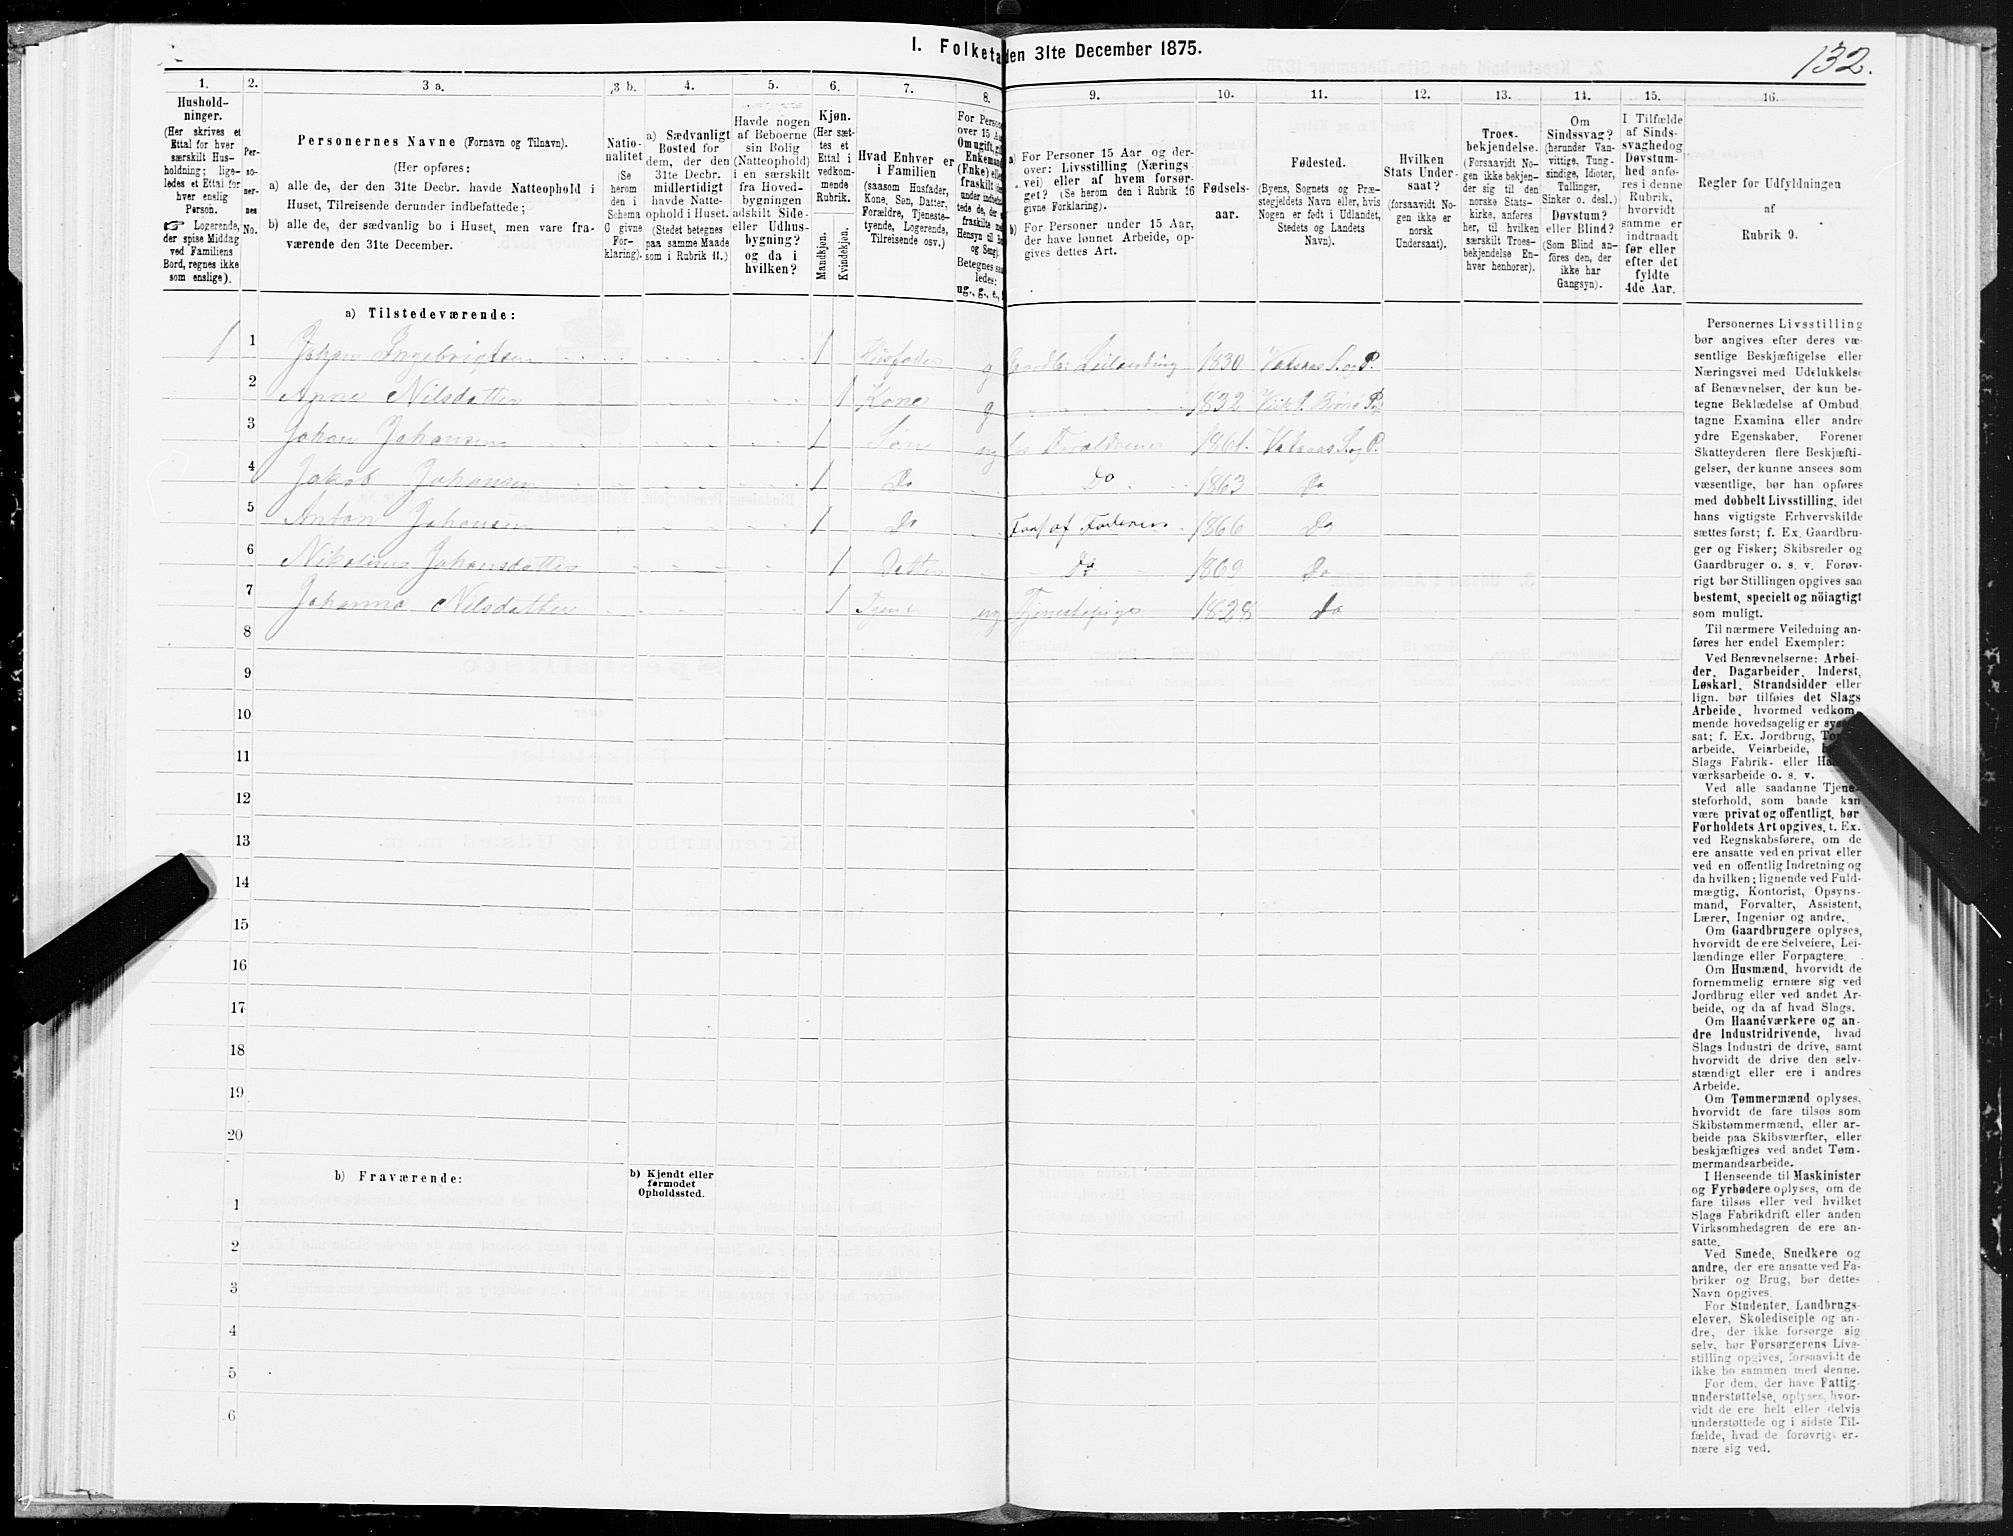 132.
I. Folketa
den 31te December 1875.
1. 2. 3 a. 3 b. 4. 5. 6. 7. 8. 9. 10. 11. 12. 13. 14. 15. 16.
Hushold-
ninger.
(Her skrives et
Ettal for hver
særskilt Hus-
holdning; lige-
ledes et Ettal for
hver enslig
Person.
☞ Logerende,
der spise Middag
ved Familiens
Bord, regnes ikke
som enslige).
Per-
so-
ner-
nes
No.
Personernes Navne (Fornavn og Tilnavn).
(Her opføres:
a) alle de, der den 31te Decbr. havde Natteophold i
Huset, Tilreisende derunder indbefattede;
b) alle de, der sædvanlig bo i Huset, men vare fra-
værende den 31te December.
Natio-
nalitet
(Se
herom
den i
Schema
C givne
For-
klaring).
a) Sædvanligt
Bosted for
dem, der den
31te Decbr.
midlertidigt
havde Natte-
ophold i Huset.
(Stedet betegnes
paa samme Maade
som i Rubrik 11.)
Havde nogen
af Beboerne
sin Bolig
(Natteophold)
i en særskilt
fra Hoved-
bygningen
adskilt Side-
eller Udhus-
bygning?
og da i
hvilken?
Kjøn.
(Her sæt-
tes et
Ettal i
vedkom-
mende
Rubrik.
Mandkjøn.
Kvindekjøn.
Hvad Enhver er
i Familien
(saasom Husfader,
Kone, Søn, Datter,
Forældre, Tjeneste-
tyende, Logerende,
Tilreisende osv.)
For Person
over 15 Aar
Om ugift, g
Enkemand
(Enke) elle
fraskilt
under indbefat
tede de, der
fraskilte m
Hensyn til B
og Seng).
Betegnes saa
ledes:
ug., g., e.,
a) For Personer 15 Aar og der-
over: Livsstilling (Nærings-
vei) eller af hvem forsør-
get? (Se herom den i Rubrik 16
givne Forklaring).
b) For Personer under 15 Aar,
der have lønnet Arbeide, op-
gives dettes Art.
Fødsels-
aar.
Fødested.
(Byens, Sognets og Præ-
stegjeldets Navn eller, hvis
Nogen er født i Udlandet,
Stedets og Landets
Navn).
Hvilken
Stats Under-
saat?
(forsaavidt No-
gen ikke er
norsk
Undersaat).
Troes-
bekjendelse.
(Forsaavidt No-
gen ikke bekjen-
der sig til den
norske Stats-
kirke, anføres
her, til hvilken
særskilt Troes-
bekjendelse En-
hver henhører).
Om
Sindssvag?
(herunder Van-
vittige, Tung-
sindige, Idioter,
Tullinger,
Sinker o. desl.)
Døvstum?
eller Blind?
(Som Blind an-
føres den, der
ikke har
Gangsyn).
I Tilfælde
af Sinds-
svaghed og
Døvstum-
hed anfø-
res i denne
Rubrik,
hvorvidt
samme er
indtraadt
før eller
efter det
fyldte
4de Aar.
Regler for Udfyldningen
af
Rubrik 9.
a) Tilstedeværende:
1 1 Johan Ingebrigtsen 1 Husfader g Gaardbr: Leilænding 1830 Vatsaas S. og P.
2 Anne Nilsdatter 1 Kone g 1832 Viik S. Brønø P.
3 Johan Johansen 1 Søn ug hos Forældrene 1861. Vatsaas S. og P.
4 Jakob Johansen 1 Do Do 1863 Do
5 Anton Johansen 1 Do Fors af Faderen 1866 Do
6 Nikoline Johansdatter 1 Datter Do 1869 Do
7 Johanna Nilsdatter 1 Tjene ug Tjenestepige 1828 Do
8
9
10
11
12
13
14
15
16
17
18
19
20
b) Fraværende:
b) Kjendt eller
formodet
Opholdssted.
1
2
3
4
5
6
Personernes Livsstilling
bør angives efter deres væ-
sentlige Beskjæftigelse eller
Næringsvei med Udelukkelse
af Benævnelser, der kun be-
tegne Beklædelse af Ombud,
tagne Examina eller andre
ydre Egenskaber. Forener
Skatteyderen flere Beskjæfti-
gelser, der kunne ansees som
væsentlige, bør han opføres
med dobbelt Livsstilling, idet
hans vigtigste Erhvervskilde
sættes først; f. Ex. Gaardbru-
ger og Fisker; Skibsreder og
Gaardbruger o. s. v. Forøv-
rigt bør Stillingen opgives saa
bestemt, specielt og nøiagtigt
som muligt.
Til nærmere Veiledning an-
føres her endel Exempler:
Ved Benævnelserne: Arbei-
der, Dagarbeider, Inderst,
Løskarl, Strandsidder eller
lign. bør tilføies det Slags
Arbeide, hvormed vedkom-
mende hovedsagelig er
sat; f. Ex. Jordbrug,
arbeide, Veiarbeide,
Slags Fabrik- eller
værksarbeide o. s. v.
Ved alle saadanne Tjene-
steforhold, som baade kan
være privat og offentligt, bør
Forholdets Art opgives, t. Ex.
ved Regnskabsførere, om de
ere ansatte ved en privat eller
ved en offentlig Indretning og
da hvilken; lignende ved Fuld-
mægtig, Kontorist, Opsyns-
mand, Forvalter, Assistent,
Lærer, Ingeniør og andre.
Om Gaardbrugere oplyses,
hvorvidt de ere Selveiere, Lei-
lændinge eller Forpagtere.
Om Husmænd, hvorvidt de
fornemmelig ernære sig ved
Jordbrug eller ved andet Ar-
beide, og da af hvad Slags.
Om Haandværkere og an-
dre Industridrivende, hvad
Slags Industri de drive, samt
hvorvidt de drive den selv-
stændigt eller ere i andres
Arbeide.
Om Tømmermænd oplyses,
hvorvidt de fare tilsøs som
Skibstømmermænd, eller ar-
beide paa Skibsværfter, eller
beskjæftiges ved andet Tøm-
mermandsarbeide.
I Henseende til Maskinister
og Fyrbødere oplyses, om de
fare tilsøs eller ved hvilket
Slags Fabrikdrift eller anden
Virksomhedsgren de ere an-
satte.
Ved Smede, Snedkere og
andre, der ere ansatte ved Fa-
briker og Brug, bør dettes
Navn opgives.
For Studenter, Landbrugs-
elever, Skoledisciple og an-
dre, der ikke forsørge sig
selv, bør Forsørgerens Livs-
stilling opgives, forsaavidt de
ikke bo sammen med denne.
For dem, der have Fattig-
understøttelse, oplyses, hvor-
vidt de ere helt eller delvis
understøttede og i sidste Til-
fælde, hvad de forøvrigt er-
nære sig ved.